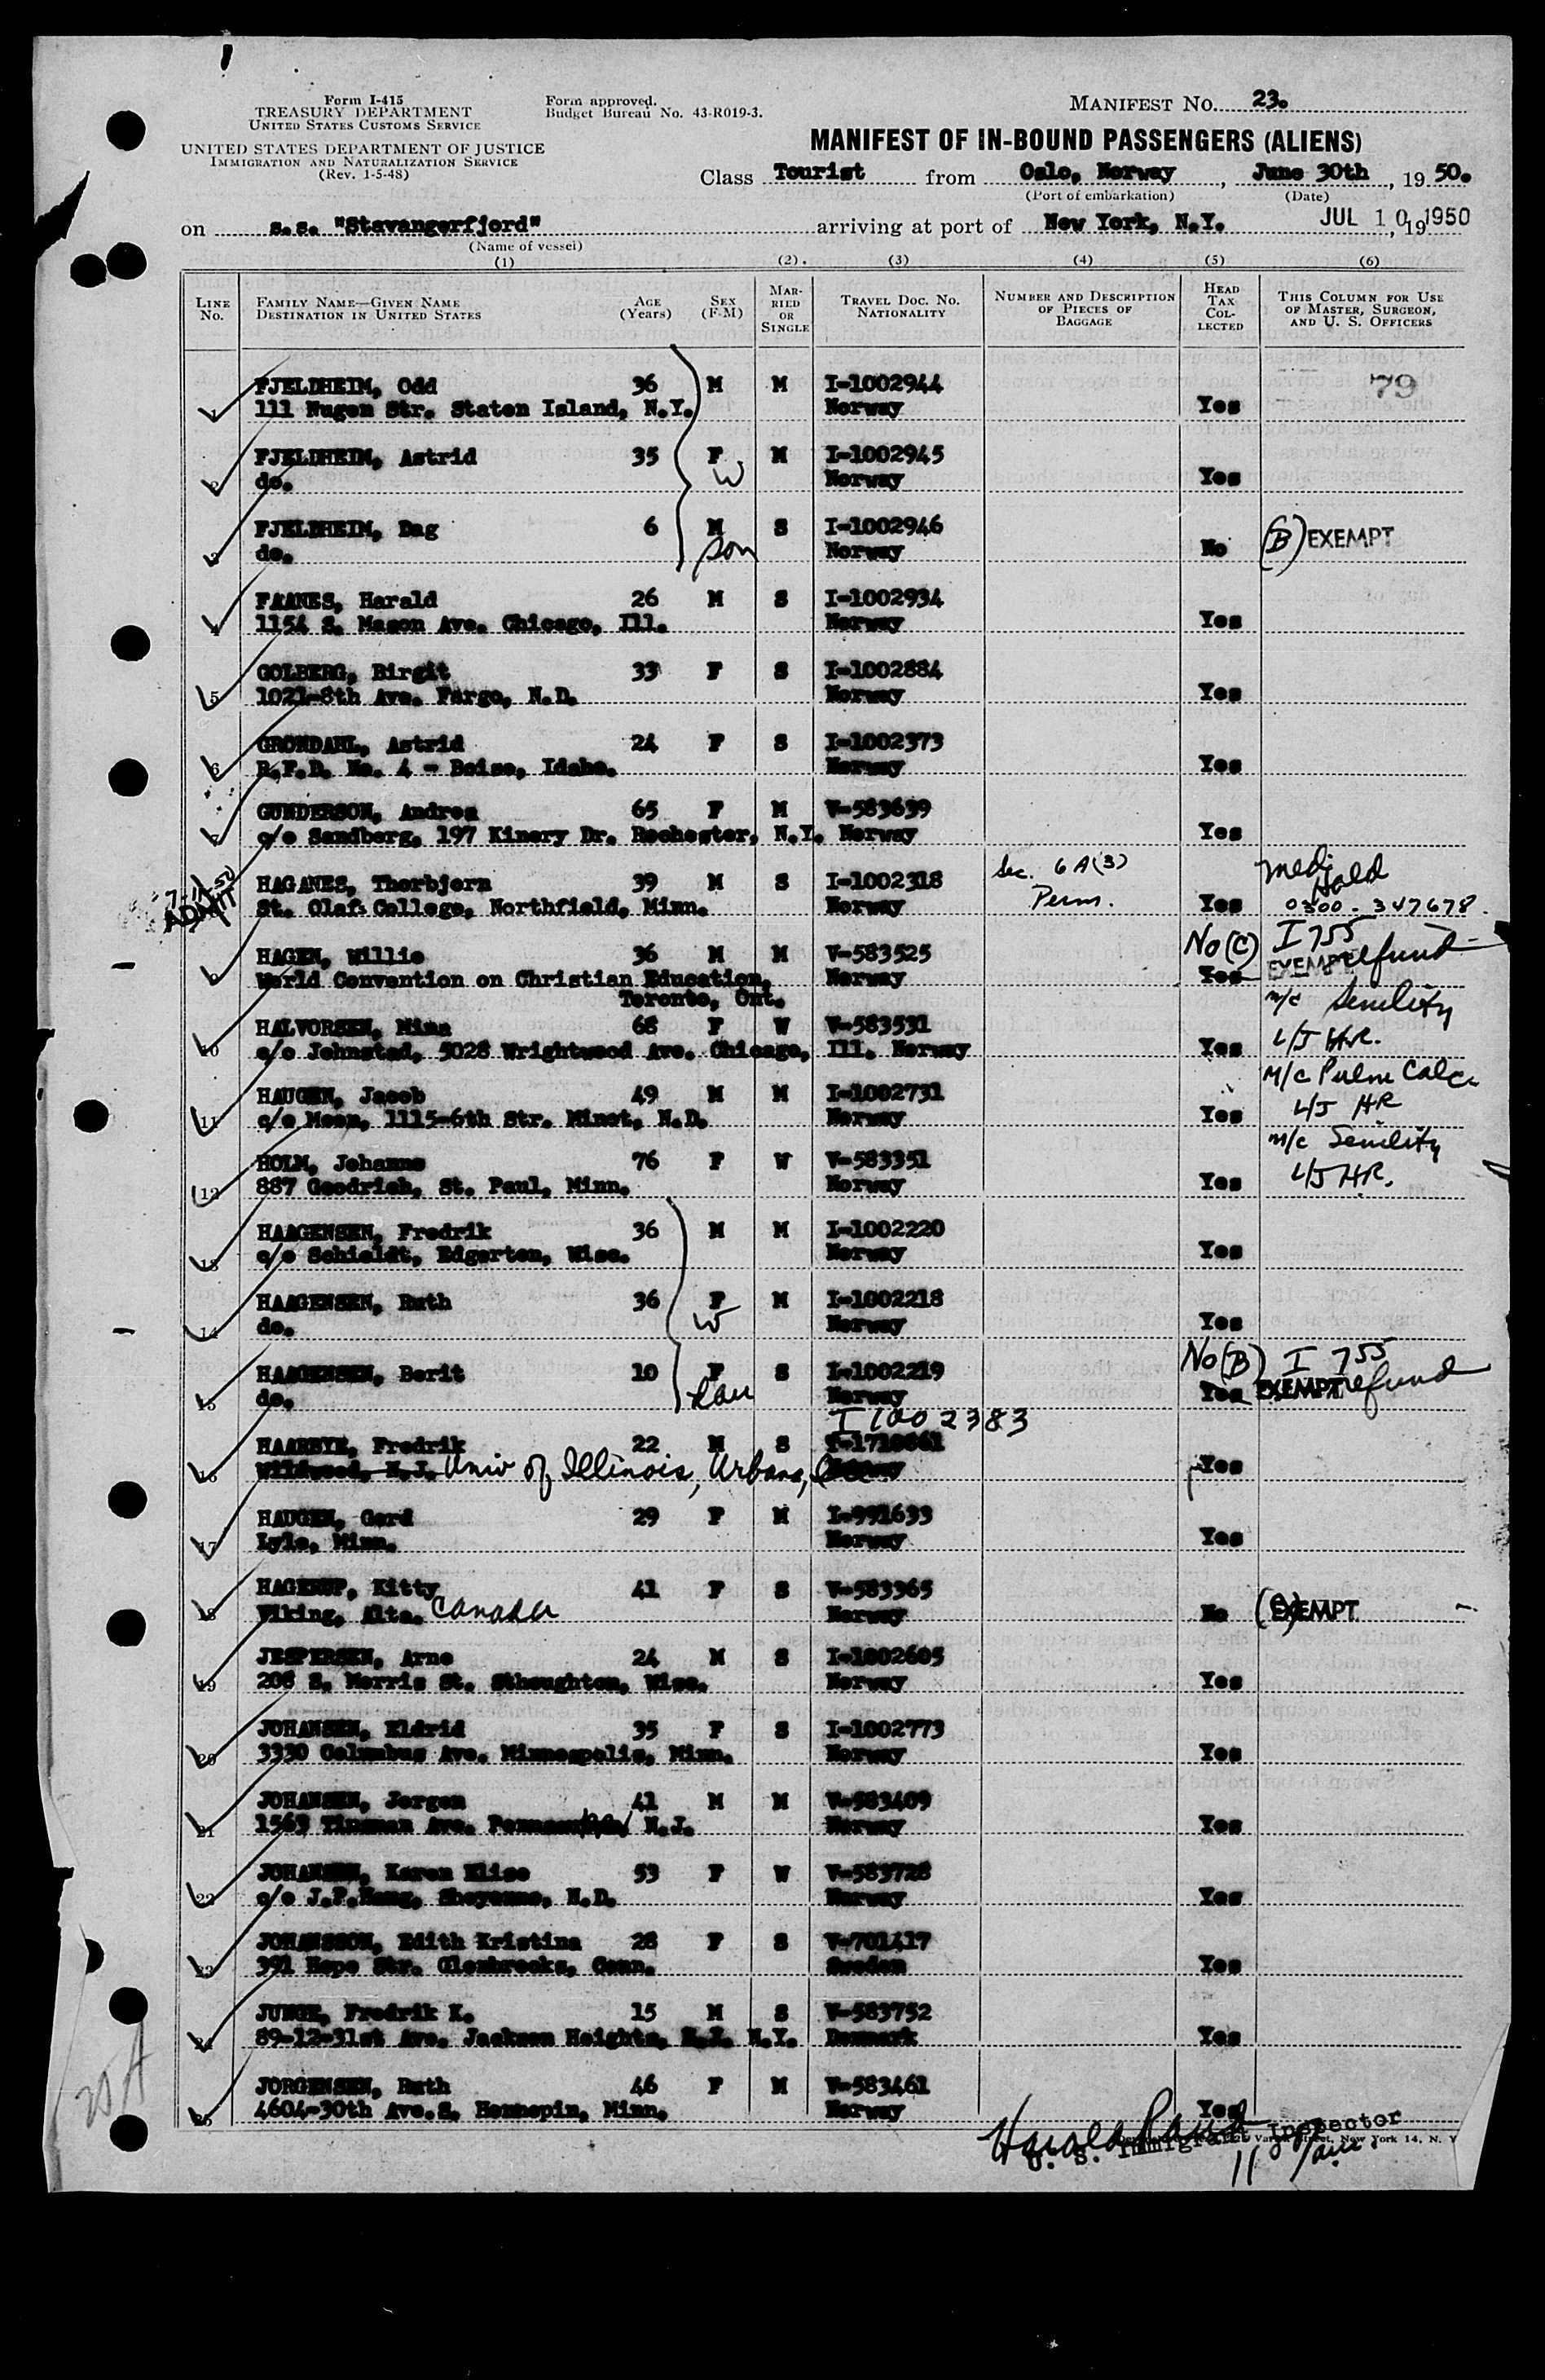 Form I-415
TREASURY DEPARTMENT
UNITED STATES CUSTOMS SERVICE
UNITED STATES DEPARTMENT OF JUSTICE
IMMIGRATION AND NATURALIZATION SERVICE
(Rev. 1-5-48)
Form approved.
Budget Bureau No. 43-R019-3.
MANIFEST NO. 23.
MANIFEST OF IN-BOUND PASSENGERS (ALIENS)
Class Tourist from Oslo, Norway, June 30th, 19 50.
(Port of embarkation) (Date)
on s.s. "Stavangerfjord" arriving at port of New York, N.Y. JUL 10, 19 1950
(Name of vessel)
(1) (2) (3) (4) (5) (6)
LINE No. FAMILY NAME—GIVEN NAME DESTINATION IN UNITED STATES AGE (Years) SEX (F-M) MARRIED OR SINGLE TRAVEL DOC. NO. NATIONALITY NUMBER AND DESCRIPTION OF PIECES OF BAGGAGE HEAD TAX COLLECTED THIS COLUMN FOR USE OF MASTER, SURGEON, AND U. S. OFFICERS
FJELDHEIM, Odd 36 M M I-1002944 79
1 111 Nugen Str. Staten Island, N.Y. Norway Yes
FJELDHEIM, Astrid 35 F M I-1002945
2 do. W Norway Yes
FJELDHEIM, Dag 6 M S I-1002946
3 do. son Norway No (B) EXEMPT
FAANES, Harald 26 M S I-1002934
4 1154 S. Mason Ave. Chicago, Ill. Norway Yes
GOLBERG, Birgit 33 F S I-1002884
5 1021-8th Ave. Fargo, N.D. Norway Yes
GRONDAHL, Astrid 24 F S I-1002373
6 R.F.D. No. 4 - Boise, Idaho. Norway Yes
GUNDERSON, Andrea 65 F M V-583639
7 c/o Sandberg, 197 Kinery Dr. Rochester, N.Y. Norway Yes
7-11-50 ADMIT
HAGANES, Thorbjorn 39 M S I-1002318 Sec. 6A(3) Med Hold
St. Olaf College, Northfield, Minn. Norway Perm. Yes 0300-347678.
HAGEN, Willie 36 M M V-583525 No (C) I 755
9 World Convention on Christian Education, Norway Yes EXEMPT refund
Toronto, Ont.
HALVORSEN, Mina 68 F W V-583531 m/c Senility
10 c/o Johnstad, 5028 Wrightwood Ave. Chicago, Ill. Norway Yes L/J HR.
HAUGEN, Jacob 49 M M I-1002731 M/C Pulm Calc.
11 c/o Moen, 1115-6th Str. Minot, N.D. Norway Yes L/J HR
HOLM, Johanne 76 F W V-583351 m/c Senility
12 887 Goodrich, St. Paul, Minn. Norway Yes L/J HR.
HAAGENSEN, Fredrik 36 M M I-1002220
13 c/o Schieldt, Edgerton, Wisc. Norway Yes
HAAGENSEN, Ruth 36 F M I-1002218
14 do. W Norway Yes
HAAGENSEN, Berit 10 F S I-1002219 No (B) I 755
15 do. dau Norway Yes EXEMPT refund
I 1002383
HAARBYE, Fredrik 22 M S
16 Wildwood, N.J. Univ of Illinois, Urbana, Yes
HAUGEN, Gerd 29 F M I-991633
17 Lyle, Minn. Norway Yes
HAGERUP, Kitty 41 F S V-583365
18 Viking, Alta. Canada Norway No EXEMPT
JESPERSEN, Arne 24 M S I-1002605
19 208 S. Morris St. Sthoughton, Wisc. Norway Yes
JOHANSEN, Eldrid 35 F S I-1002773
20 3330 Columbus Ave. Minneapolis, Minn. Norway Yes
JOHANSEN, Jorgen 41 M M V-583409
21 1563 Ave. N.J. Norway Yes
JOHANSEN, Karen Elise 53 F W V-583728
22 c/o J.P.Haug, Sheyenne, N.D. Norway Yes
JOHANSSON, Edith Kristina 28 F S V-701417
23 391 Hope Str. Glenbrooke, Conn. Sweden Yes
JUNGE, Fredrik K. 15 M S V-583752
24 89-12-31st Ave. Jackson Heights, N.Y. Denmark Yes
JORGENSEN, Ruth 46 F M V-583461
25 4604-30th Ave.S. Hennepin, Minn. Norway Yes
U. S. Immigrant Inspector
New York 14, N. Y.